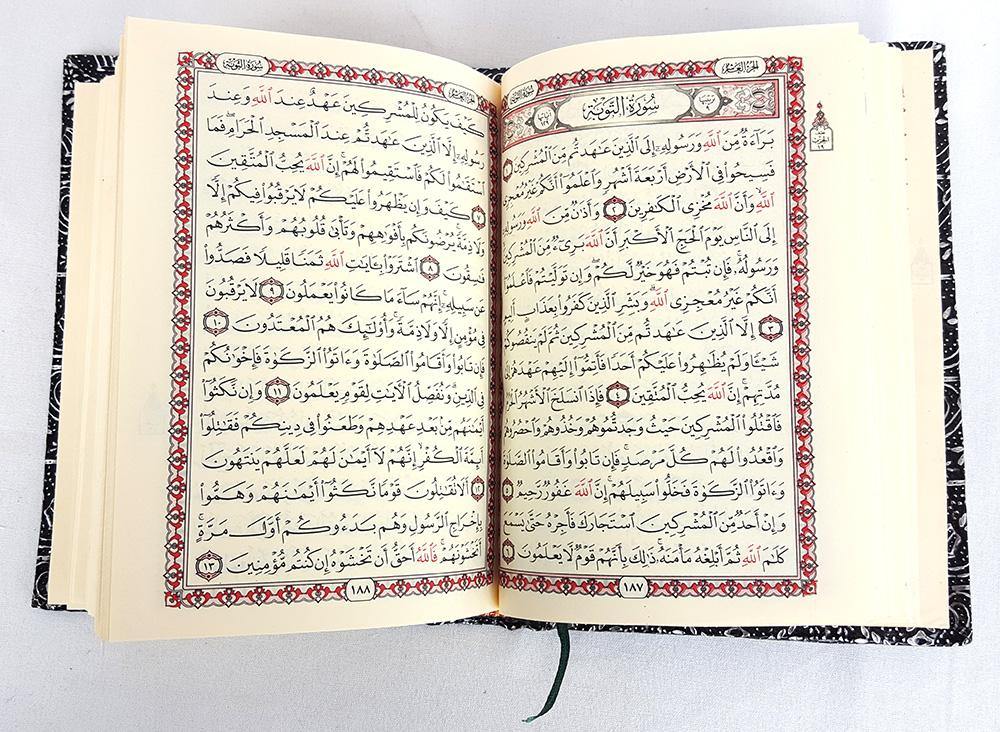 الجزء العاشر
سورة التوبة
سورة التوبة
بَرَآءَةٌ مِّنَ ٱللَّهِ وَرَسُولِهِۦٓ إِلَى ٱلَّذِينَ عَٰهَدتُّم مِّنَ ٱلْمُشْرِكِينَ ١
فَسِيحُوا۟ فِى ٱلْأَرْضِ أَرْبَعَةَ أَشْهُرٍ وَٱعْلَمُوٓا۟ أَنَّكُمْ غَيْرُ مُعْجِزِى
ٱللَّهِ وَأَنَّ ٱللَّهَ مُخْزِى ٱلْكَٰفِرِينَ ٢ وَأَذَٰنٌ مِّنَ ٱللَّهِ وَرَسُولِهِۦٓ
إِلَى ٱلنَّاسِ يَوْمَ ٱلْحَجِّ ٱلْأَكْبَرِ أَنَّ ٱللَّهَ بَرِىٓءٌ مِّنَ ٱلْمُشْرِكِينَ
وَرَسُولُهُۥ فَإِن تُبْتُمْ فَهُوَ خَيْرٌ لَّكُمْ وَإِن تَوَلَّيْتُمْ فَٱعْلَمُوٓا۟
أَنَّكُمْ غَيْرُ مُعْجِزِى ٱللَّهِ وَبَشِّرِ ٱلَّذِينَ كَفَرُوا۟ بِعَذَابٍ أَلِيمٍ
٣ إِلَّا ٱلَّذِينَ عَٰهَدتُّم مِّنَ ٱلْمُشْرِكِينَ ثُمَّ لَمْ يَنقُصُوكُمْ
شَيْـًٔا وَلَمْ يُظَٰهِرُوا۟ عَلَيْكُمْ أَحَدًا فَأَتِمُّوٓا۟ إِلَيْهِمْ عَهْدَهُمْ إِلَىٰ
مُدَّتِهِمْ إِنَّ ٱللَّهَ يُحِبُّ ٱلْمُتَّقِينَ ٤ فَإِذَا ٱنسَلَخَ ٱلْأَشْهُرُ ٱلْحُرُمُ
فَٱقْتُلُوا۟ ٱلْمُشْرِكِينَ حَيْثُ وَجَدتُّمُوهُمْ وَخُذُوهُمْ وَٱحْصُرُوهُمْ
وَٱقْعُدُوا۟ لَهُمْ كُلَّ مَرْصَدٍ فَإِن تَابُوا۟ وَأَقَامُوا۟ ٱلصَّلَوٰةَ
وَءَاتَوُا۟ ٱلزَّكَوٰةَ فَخَلُّوا۟ سَبِيلَهُمْ إِنَّ ٱللَّهَ غَفُورٌ رَّحِيمٌ ٥
وَإِنْ أَحَدٌ مِّنَ ٱلْمُشْرِكِينَ ٱسْتَجَارَكَ فَأَجِرْهُ حَتَّىٰ يَسْمَعَ
كَلَٰمَ ٱللَّهِ ثُمَّ أَبْلِغْهُ مَأْمَنَهُۥ ذَٰلِكَ بِأَنَّهُمْ قَوْمٌ لَّا يَعْلَمُونَ ٦
١٨٧
سورة التوبة
الجزء العاشر
كَيْفَ يَكُونُ لِلْمُشْرِكِينَ عَهْدٌ عِندَ ٱللَّهِ وَعِندَ
رَسُولِهِۦٓ إِلَّا ٱلَّذِينَ عَٰهَدتُّمْ عِندَ ٱلْمَسْجِدِ ٱلْحَرَامِ فَمَا
ٱسْتَقَٰمُوا۟ لَكُمْ فَٱسْتَقِيمُوا۟ لَهُمْ إِنَّ ٱللَّهَ يُحِبُّ ٱلْمُتَّقِينَ
٧ كَيْفَ وَإِن يَظْهَرُوا۟ عَلَيْكُمْ لَا يَرْقُبُوا۟ فِيكُمْ إِلًّا
وَلَا ذِمَّةً يُرْضُونَكُم بِأَفْوَٰهِهِمْ وَتَأْبَىٰ قُلُوبُهُمْ وَأَكْثَرُهُمْ
فَٰسِقُونَ ٨ ٱشْتَرَوْا۟ بِـَٔايَٰتِ ٱللَّهِ ثَمَنًا قَلِيلًا فَصَدُّوا۟
عَن سَبِيلِهِۦٓ إِنَّهُمْ سَآءَ مَا كَانُوا۟ يَعْمَلُونَ ٩ لَا يَرْقُبُونَ
فِى مُؤْمِنٍ إِلًّا وَلَا ذِمَّةً وَأُو۟لَٰٓئِكَ هُمُ ٱلْمُعْتَدُونَ ١٠
فَإِن تَابُوا۟ وَأَقَامُوا۟ ٱلصَّلَوٰةَ وَءَاتَوُا۟ ٱلزَّكَوٰةَ فَإِخْوَٰنُكُمْ
فِى ٱلدِّينِ وَنُفَصِّلُ ٱلْـَٔايَٰتِ لِقَوْمٍ يَعْلَمُونَ ١١ وَإِن نَّكَثُوٓا۟
أَيْمَٰنَهُم مِّنۢ بَعْدِ عَهْدِهِمْ وَطَعَنُوا۟ فِى دِينِكُمْ فَقَٰتِلُوٓا۟
أَئِمَّةَ ٱلْكُفْرِ إِنَّهُمْ لَآ أَيْمَٰنَ لَهُمْ لَعَلَّهُمْ يَنتَهُونَ
١٢ أَلَا تُقَٰتِلُونَ قَوْمًا نَّكَثُوٓا۟ أَيْمَٰنَهُمْ وَهَمُّوا۟
بِإِخْرَاجِ ٱلرَّسُولِ وَهُم بَدَءُوكُمْ أَوَّلَ مَرَّةٍ
أَتَخْشَوْنَهُمْ فَٱللَّهُ أَحَقُّ أَن تَخْشَوْهُ إِن كُنتُم مُّؤْمِنِينَ ١٣
١٨٨